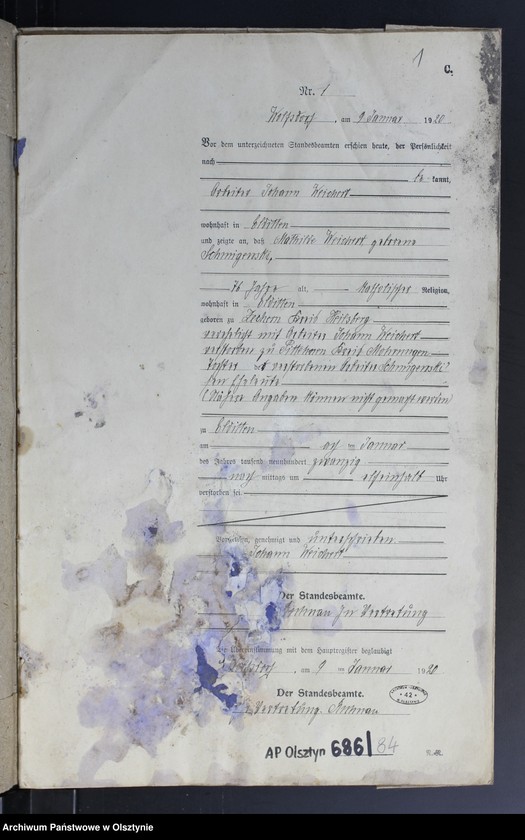 1
C.
Nr. 1
Wolfsdorf, am 9 Januar 1920
Vor dem unterzeichneten Standesbeamten erschien heute, der Persönlichkeit
nach
be kannt,
Arbeiter Johann Weichert
wohnhaft in Elditten
und zeigte an, daß Mathilde Weichert geborene
Schmigenski,
76 Jahre alt, katholischer Religion,
wohnhaft in Elditten
geboren zu Zechern Kreis Heilsberg
verehelicht mit Arbeiter Johann Weichert
verstorben zu Kreis Mohrungen
Tochter verstorbenen Arbeiter Schmigenski
schen Eheleute
(Nähere Angaben können nicht gemacht werden
zu Elditten
am Januar
des Jahres tausend neunhundert zwanzig
nach mittags um elfeinhalb Uhr
verstorben sei
Vorgelesen, genehmigt und unterschrieben
Johann Weichert
Der Standesbeamte.
In Vertretung
Die Übereinstimmung mit dem Hauptregister beglaubigt
Wolfsdorf, am 9 ten Januar 1920
Der Standesbeamte.
In Vertretung.
42
AP Olsztyn 686/84
Archiwum Państwowe w Olsztynie